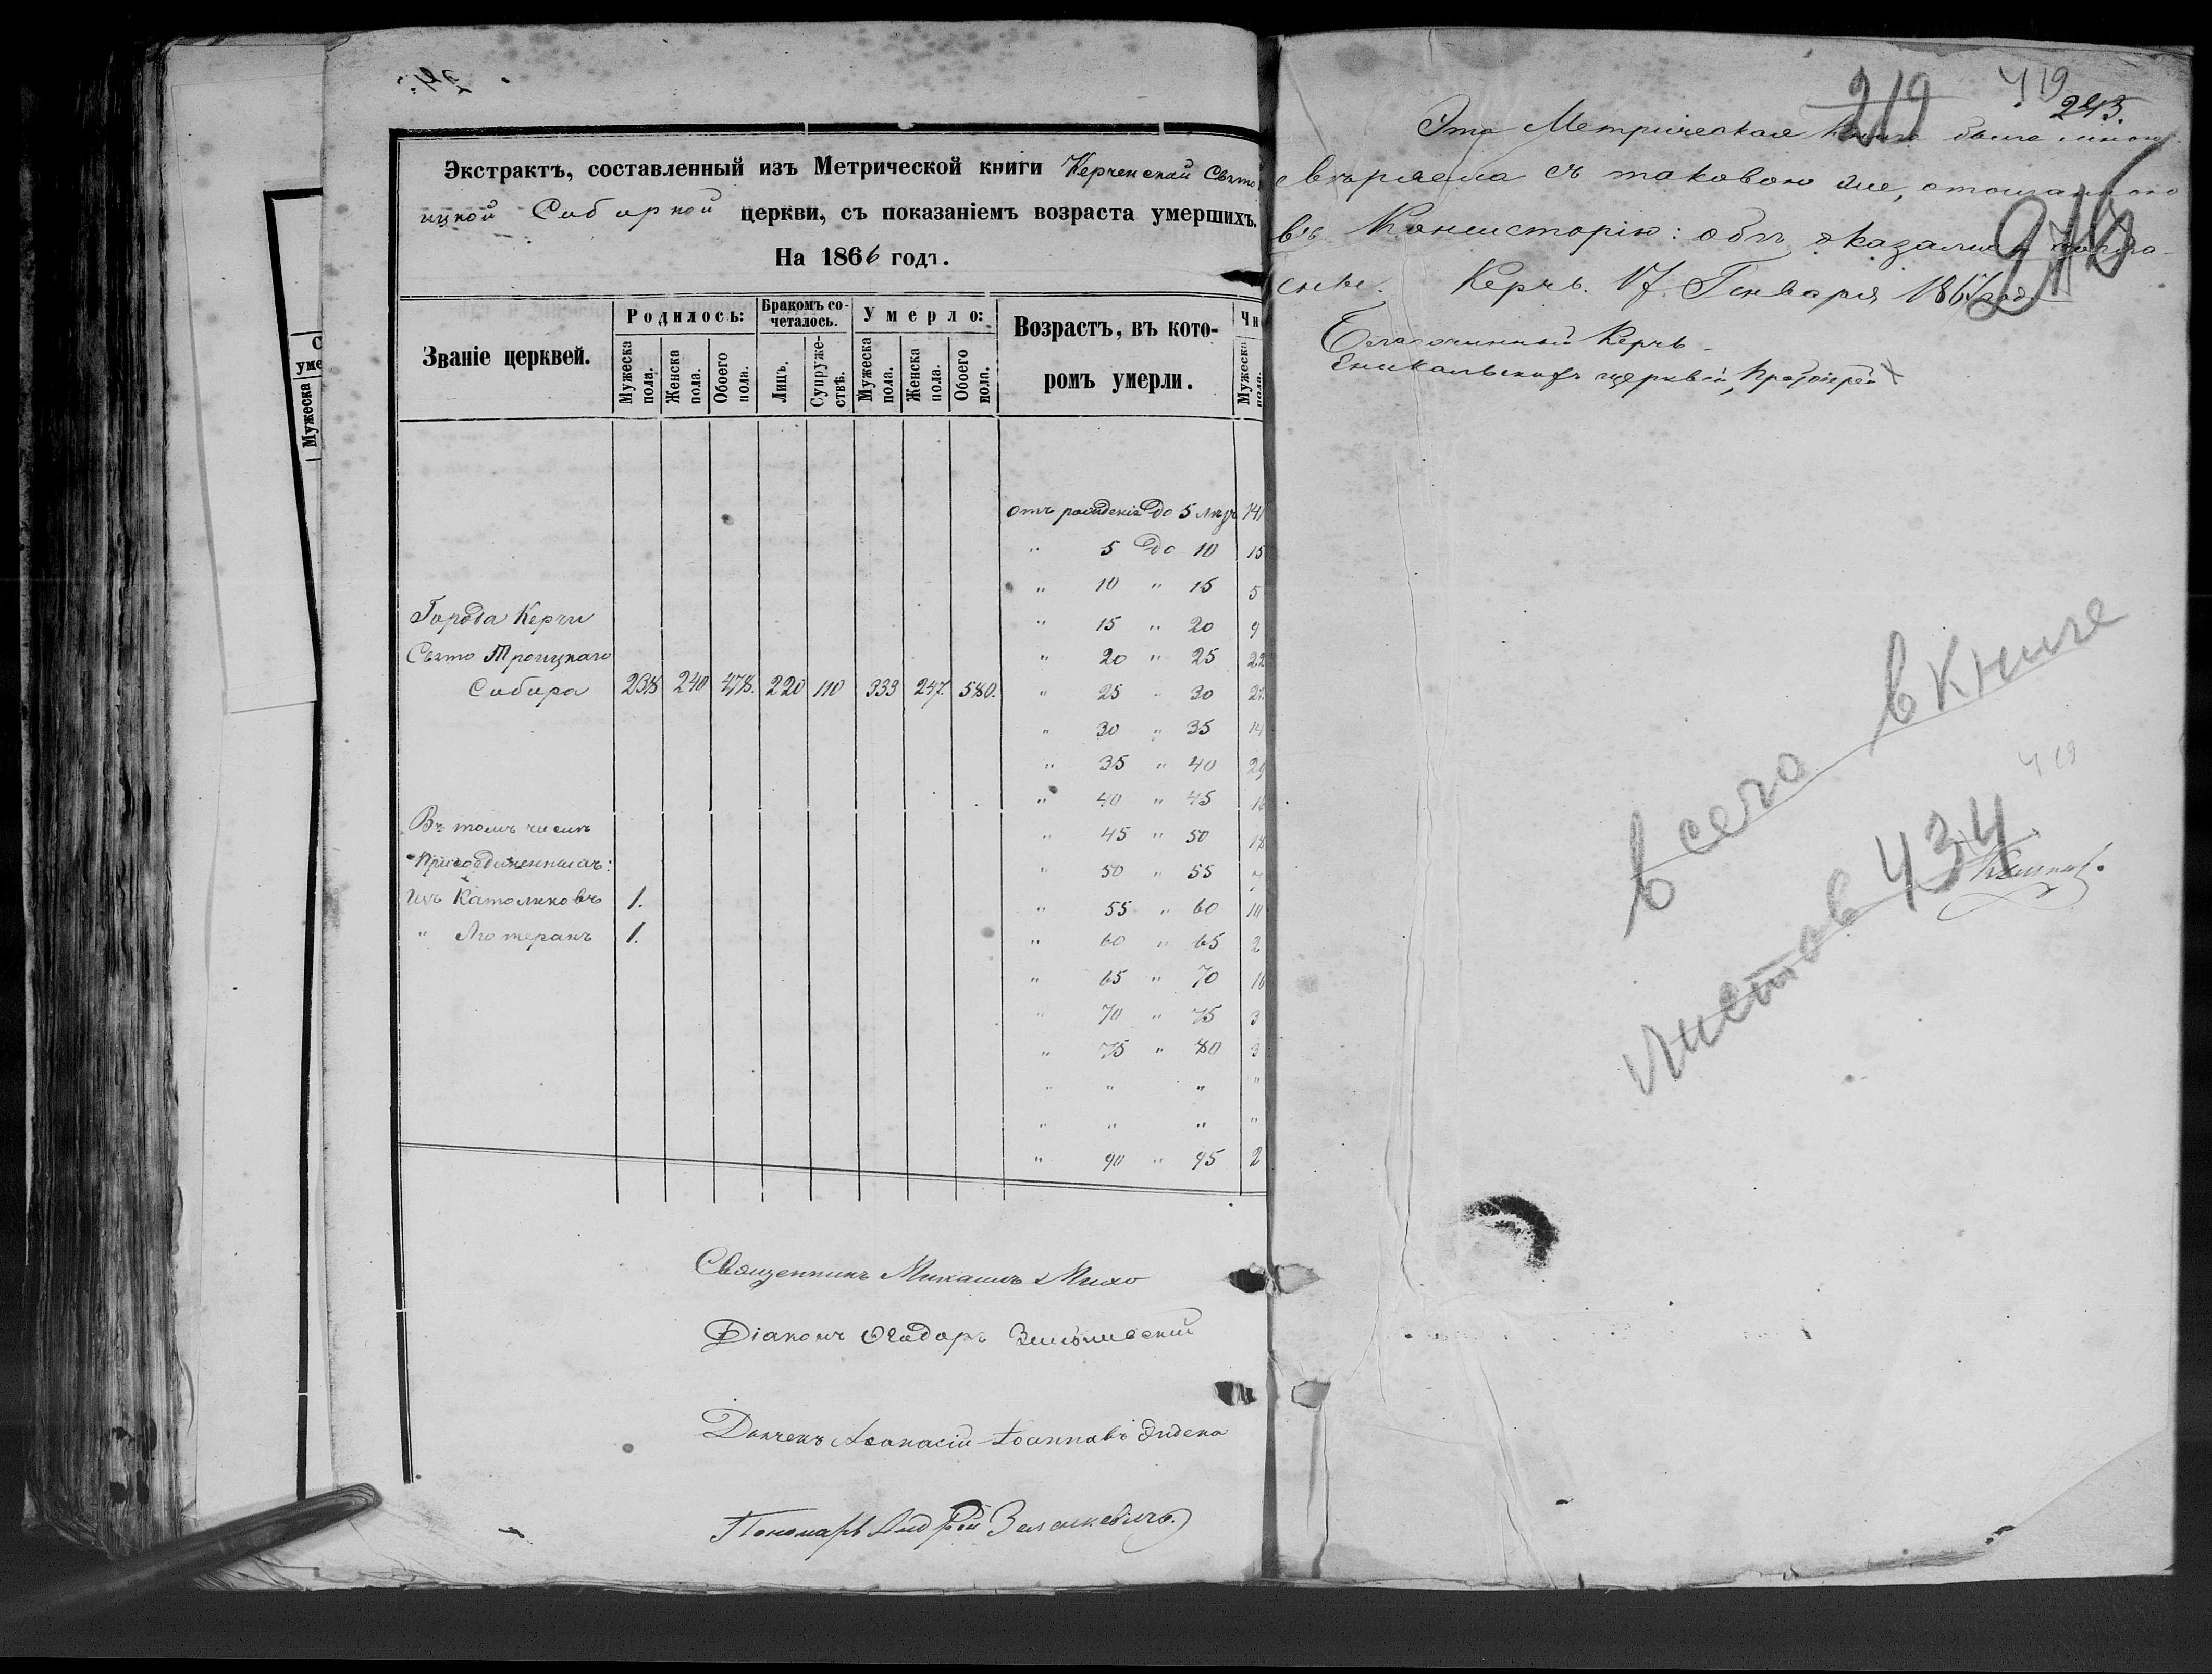 Экстрактъ, составленный изъ Метрической книги Керченской Свято
ицкой Соборной церкви, съ показаніемъ возраста умершихъ.
На 1866 годъ.
Званіе церквей.
Родилось:
Бракомъ со-
четалось.
Умерло:
Возрастъ, въ кото-
ромъ умерли.
Чи
Мужеска пола.
Женска пола.
Обоего пола.
Лицъ.
Супруже-
ствъ.
Мужеска пола.
Женска пола.
Обоего пола.
Мужеска пола.
отъ рожденія до 5 лѣтъ 141
" 5 до 10 15
" 10 " 15 5
Города Керчи " 15 " 20 9
Свято Троицкаго " 20 " 25 22
Собора 238 240 478. 220 110 333 247. 580. " 25 " 30 21
" 30 " 35 14
" 35 " 40 29
" 40 " 45 16
Въ томъ числѣ
" 45 " 50 18
Присоединенныхъ:
" 50 " 55 7
Изъ Католиковъ 1. " 55 " 60
" Лютеранъ 1. " 60 " 65 2
" 65 " 70 16
" 70 " 75 3
" 75 " 80 3
" " " "
" " " "
" 90 " 95 2
Священникъ Михаилъ Михо
Діаконъ Ѳеодоръ
Дьячекъ Аѳанасій Іоанновъ Диденко
Пономарь Андрей
С
уме
Мужеска
219
419
243.
Эта Метрическая книга была мною
свѣряема съ таковою же, отосланною
въ Консисторію: обѣ оказались согла-
216
сны. Керчь. 17 Генваря 1867 года
Благочинный Керчь-
Еникальскихъ церквей, Протоіерей
всего в книге
419
листов 434